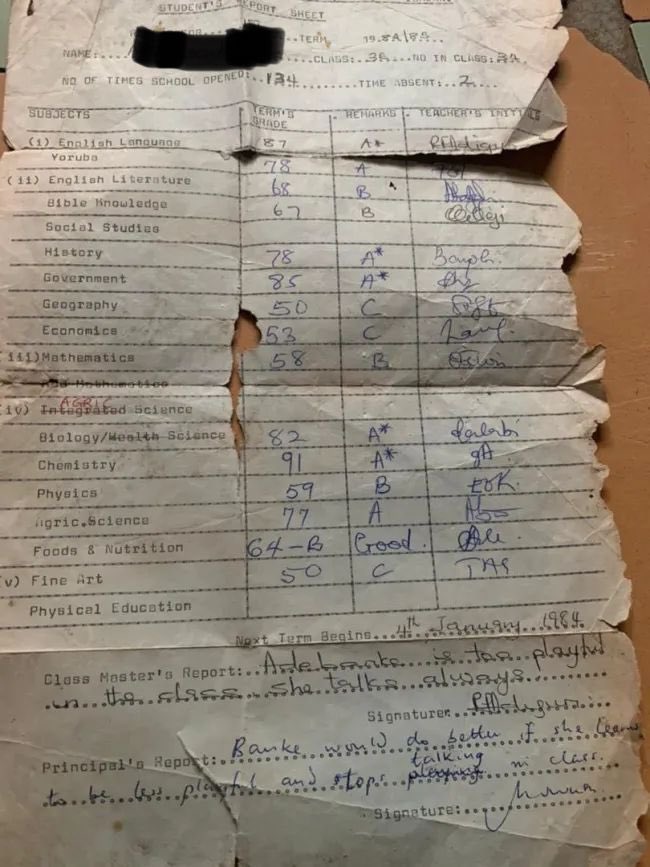 STUDENT'S REPORT SHEET
TERM 1983/84
NAME: CLASS: 3A NO IN CLASS: 34
NO OF TIMES SCHOOL OPENED: 134 TIME ABSENT: 2
SUBJECTS TERM'S GRADE REMARKS TEACHER'S INITIALS
(i) English Language 87 A*
Yoruba 78 A
(ii) English Literature 68 B
Bible Knowledge 67 B
Social Studies
History 78 A*
Government 85 A*
Geography 50 C
Economics 53 C
(iii) Mathematics 58 B
Add Mathematics
AGRIC
(iv) Integrated Science
Biology/Health Science 82 A*
Chemistry 91 A*
Physics 59 B
Agric.Science 77 A
Foods & Nutrition 64-B Good
(v) Fine Art 50 C
Physical Education
Next Term Begins 4th January 1984
Class Master's Report: Adebanke is too playful
in the class she talks always
Signature:
Principal's Report: Banke would do better if she learns
to be less playful and stops talking in class.
Signature: